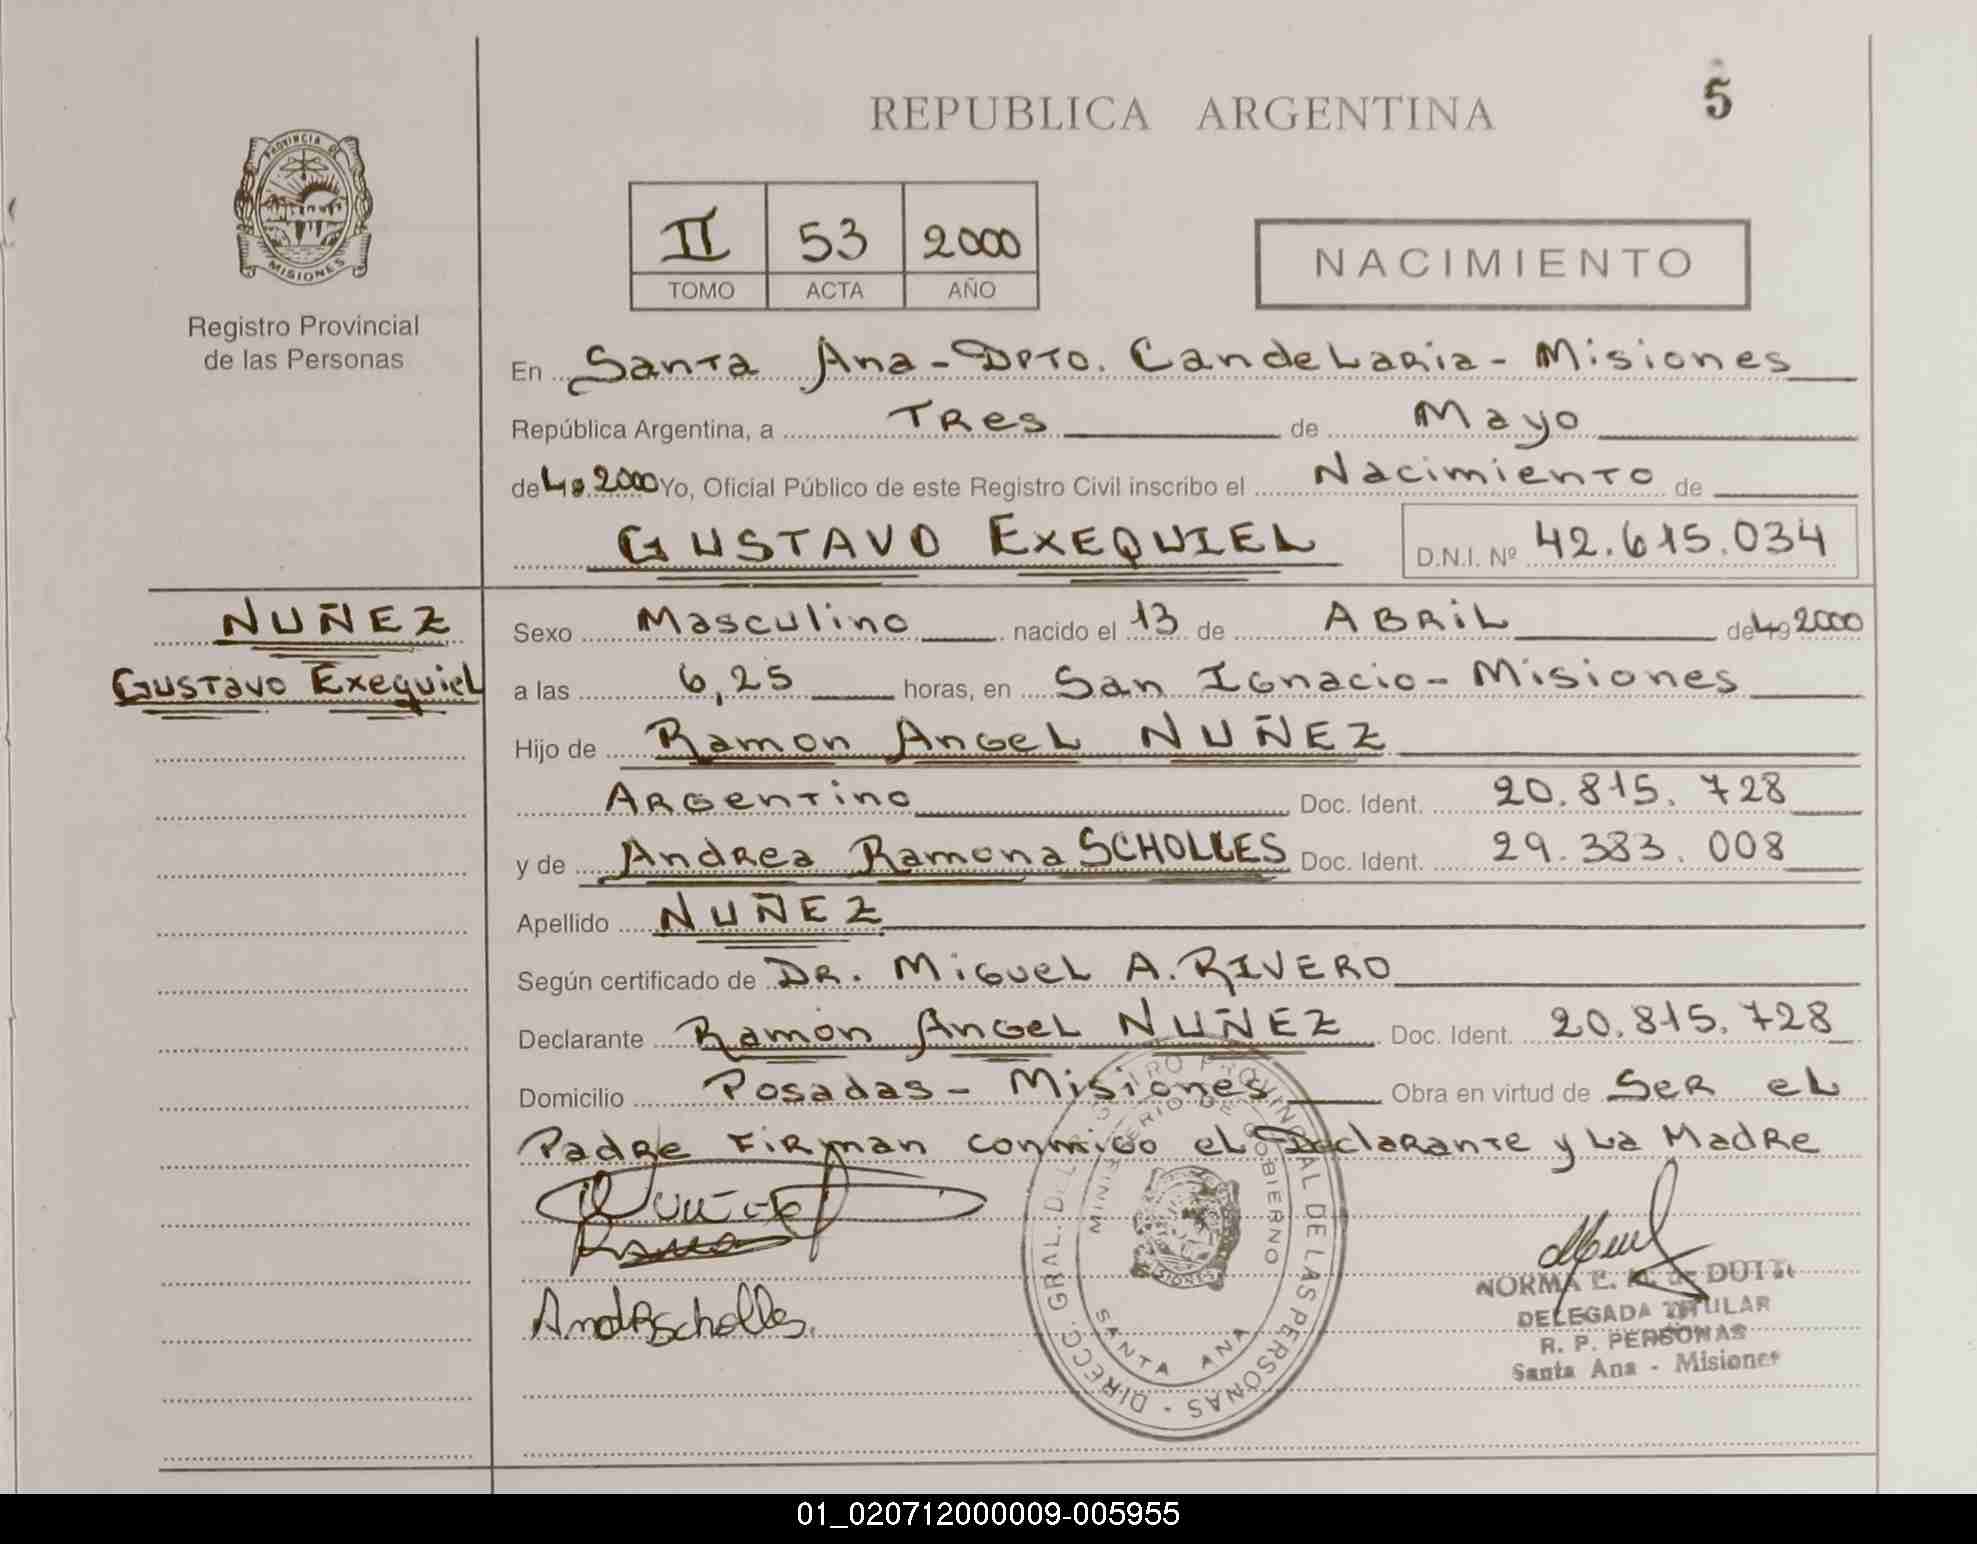 5
REPUBLICA ARGENTINA
PROVINCIA DE
MISIONES
Registro Provincial
de las Personas
II 53 2000
TOMO ACTA AÑO
NACIMIENTO
En Santa Ana - Dpto. Candelaria - Misiones
República Argentina, a Tres de Mayo
de 2000 Yo, Oficial Público de este Registro Civil inscribo el Nacimiento de
GUSTAVO EXEQUIEL D.N.I. Nº 42.615.034
NUÑEZ
Gustavo Exequiel
Sexo Masculino nacido el 13 de ABRIL de 2000
a las 6,25 horas, en San Ignacio - Misiones
Hijo de Ramon Angel NUÑEZ
Argentino Doc. Ident. 20.815.728
y de Andrea Ramona SCHOLLES Doc. Ident. 29.383.008
Apellido NUÑEZ
Según certificado de DR. Miguel A. RIVERO
Declarante Ramon Angel NUÑEZ Doc. Ident. 20.815.728
Domicilio Posadas - Misiones Obra en virtud de Ser el
Padre Firman conmigo el Declarante y La Madre
DIRECC. GRAL. DEL REGISTRO PROVINCIAL DE LAS PERSONAS
MINISTERIO DE GOBIERNO
MISIONES
SANTA ANA
NORMA
DELEGADA TITULAR
R. P. PERSONAS
Santa Ana - Misiones
01_020712000009-005955